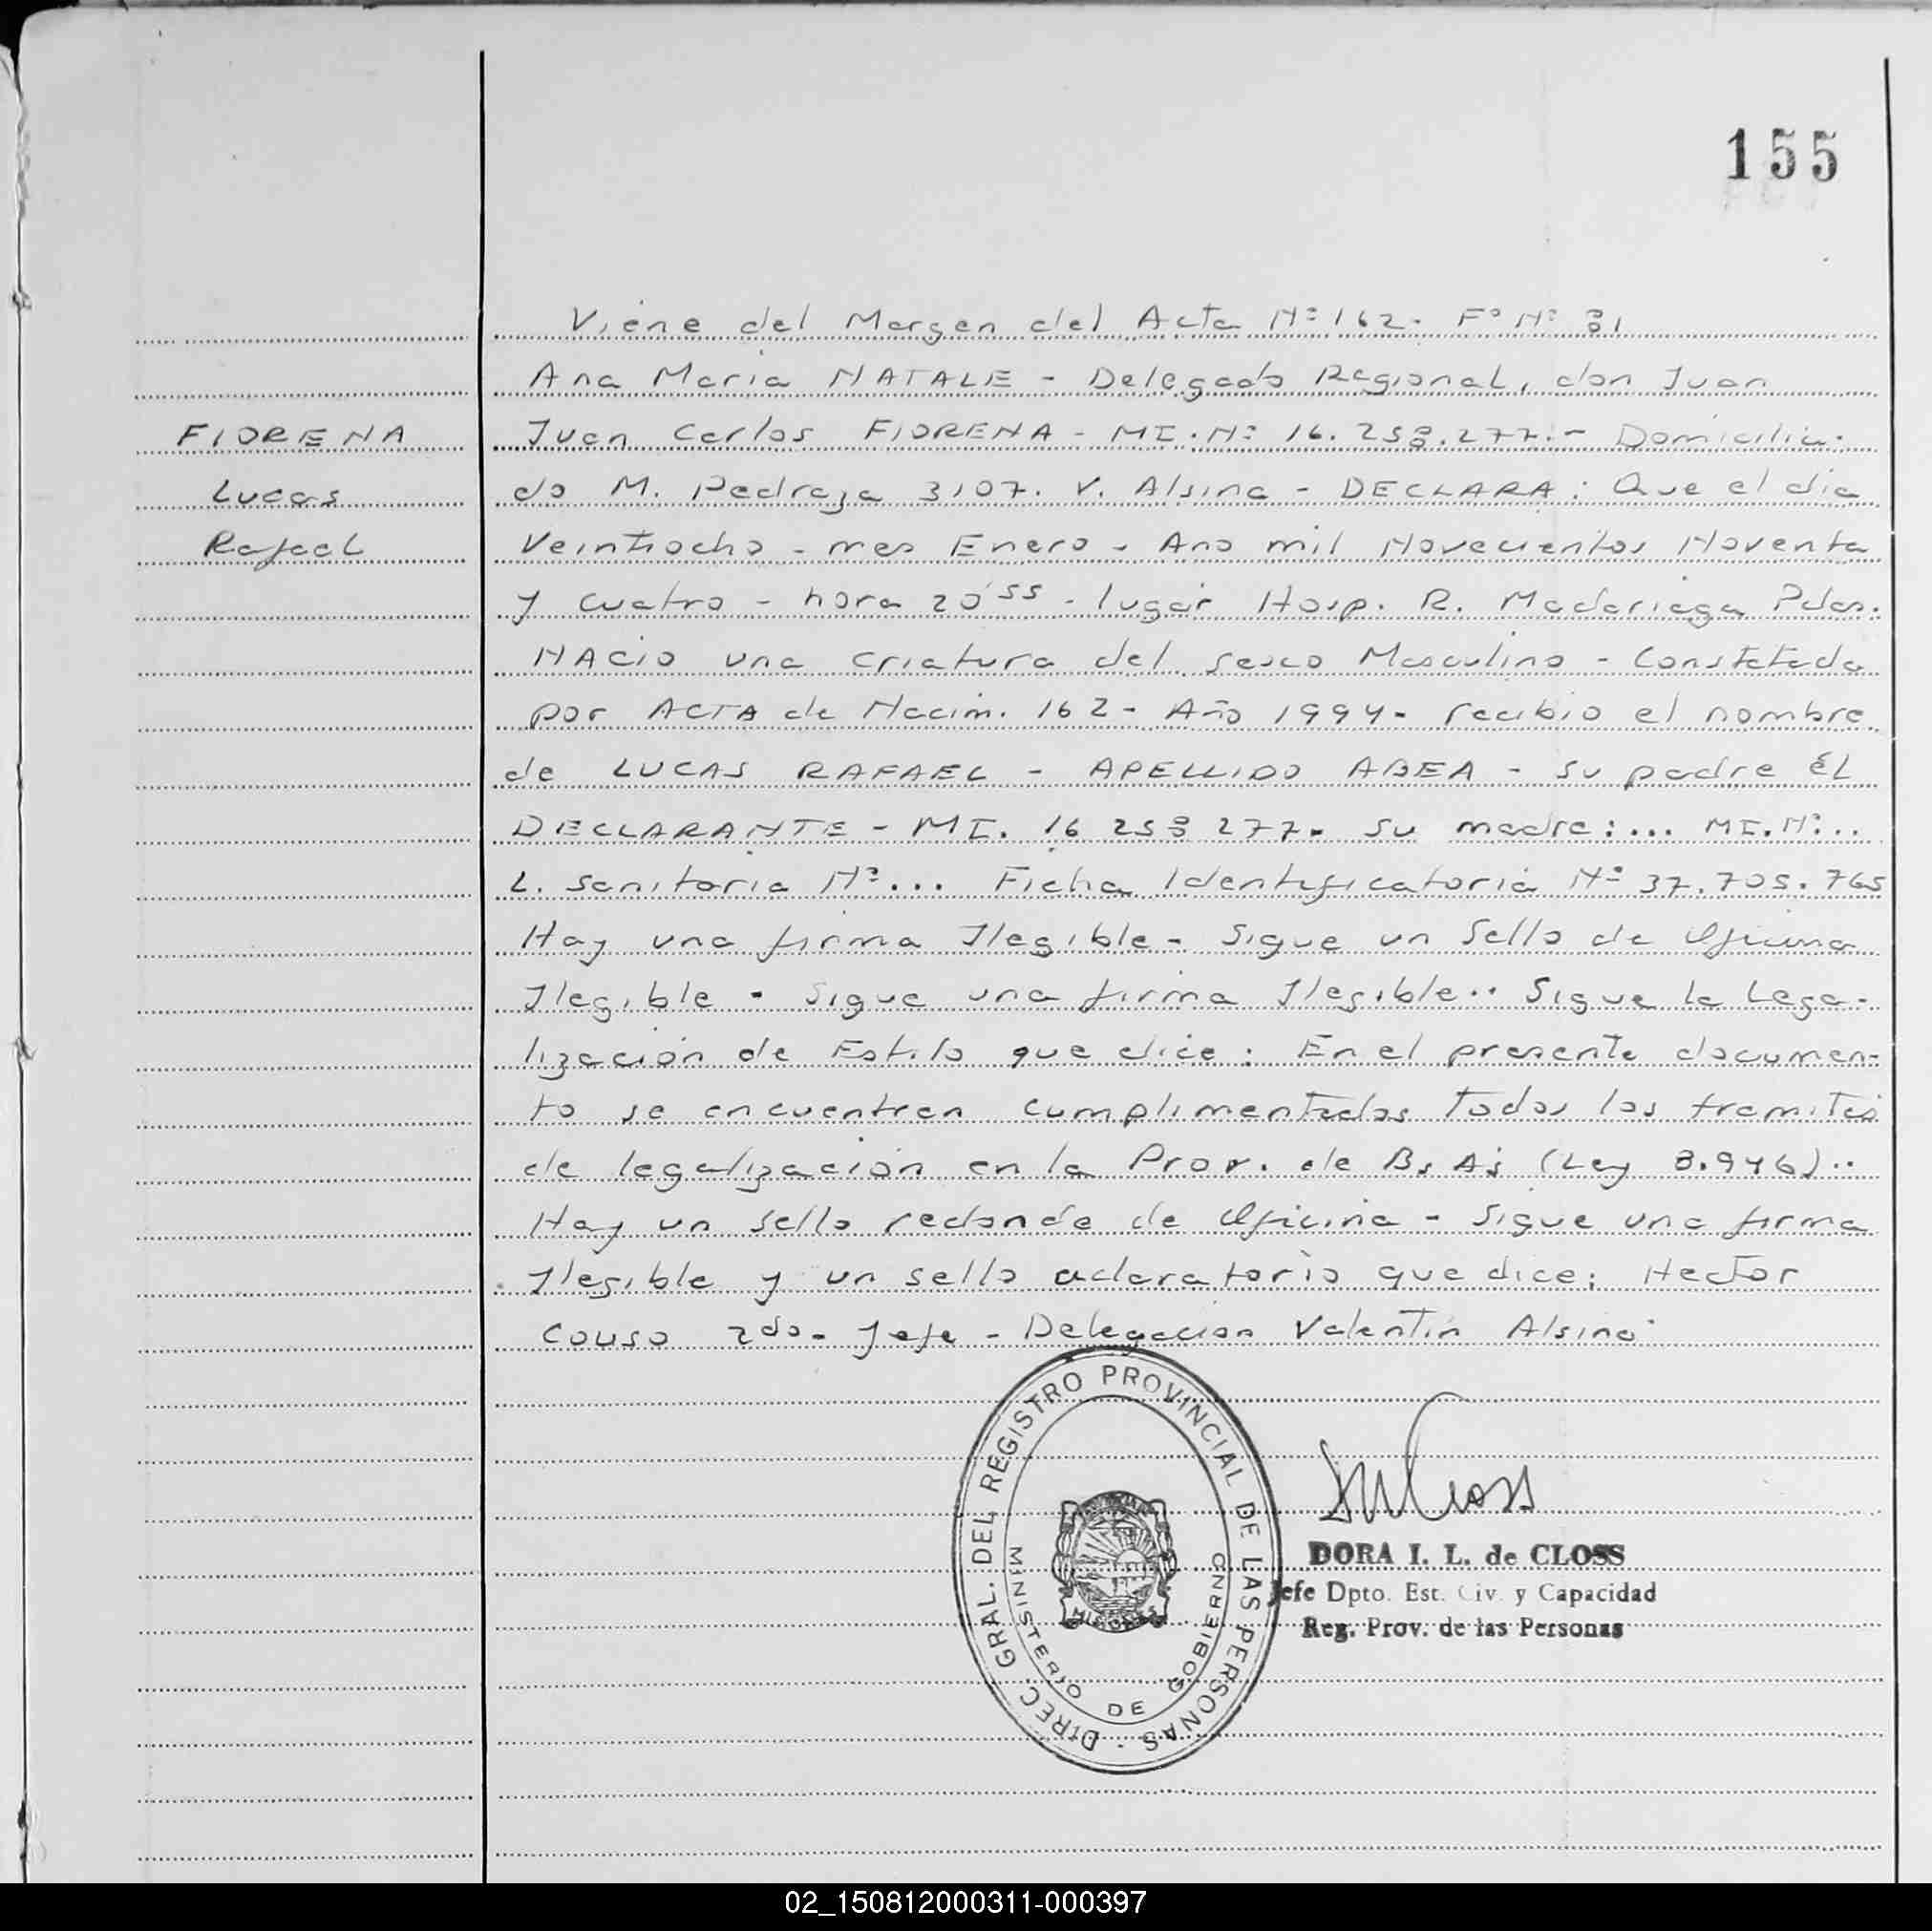 155
Viene del Margen del Acta Nº 162. Fº Nº 81
Ana Maria NATALE - Delegado Regional, don Juan
FIORENA
Juan Carlos FIORENA - MI. Nº 16.258.277.- Domicilia-
Lucas
do M. Pedraza 3107. V. Alsina - DECLARA: Que el dia
Rafael
Veintiocho - mes Enero - Ano mil Novecientos Noventa
y cuatro - hora 20'55 - lugar Hosp. R. Madariaga Pdas.
NACIO una criatura del sexo Masculino - Constatada
por ACTA de Nacim. 162 - Año 1994- recibio el nombre
de LUCAS RAFAEL - APELLIDO ABEA - su padre ÉL
DECLARANTE - MI. 16 258 277- Su madre: ... MI. Nº...
L. sanitaria Nº... Ficha Identificatoria Nº 37.705.765
Hay una firma Ilegible - Sigue un Sello de Oficina
Ilegible - Sigue una firma Ilegible.. Sigue la Lega-
lización de Estilo que dice: En el presente documen-
to se encuentran cumplimentados todos los tramites
de legalización en la Prov. de Bs As (Ley 8.946)..
Hay un sello redondo de Oficina - Sigue una firma
Ilegible y un sello aclaratorio que dice: Hector
Couso 2do- Jefe - Delegacion Valentin Alsina
DIREC. GRAL. DEL REGISTRO PROVINCIAL DE LAS PERSONAS
MINISTERIO DE GOBIERNO
MISIONES
DORA I. L. de CLOSS
Jefe Dpto. Est. Civ. y Capacidad
Reg. Prov. de las Personas
02_150812000311-000397